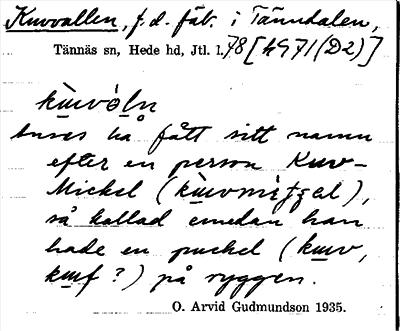 Kuvvallen, f.d. fäb. i Tänndalen,
Tännäs sn, Hede hd, Jtl. l. 78 [4971 (D2)]
anses ha fått sitt namn
efter en person Kuv-
Mickel
så kallad emedan han
hade en puckel (kuv,
kuf?) på ryggen.
O. Arvid Gudmundson 1935.